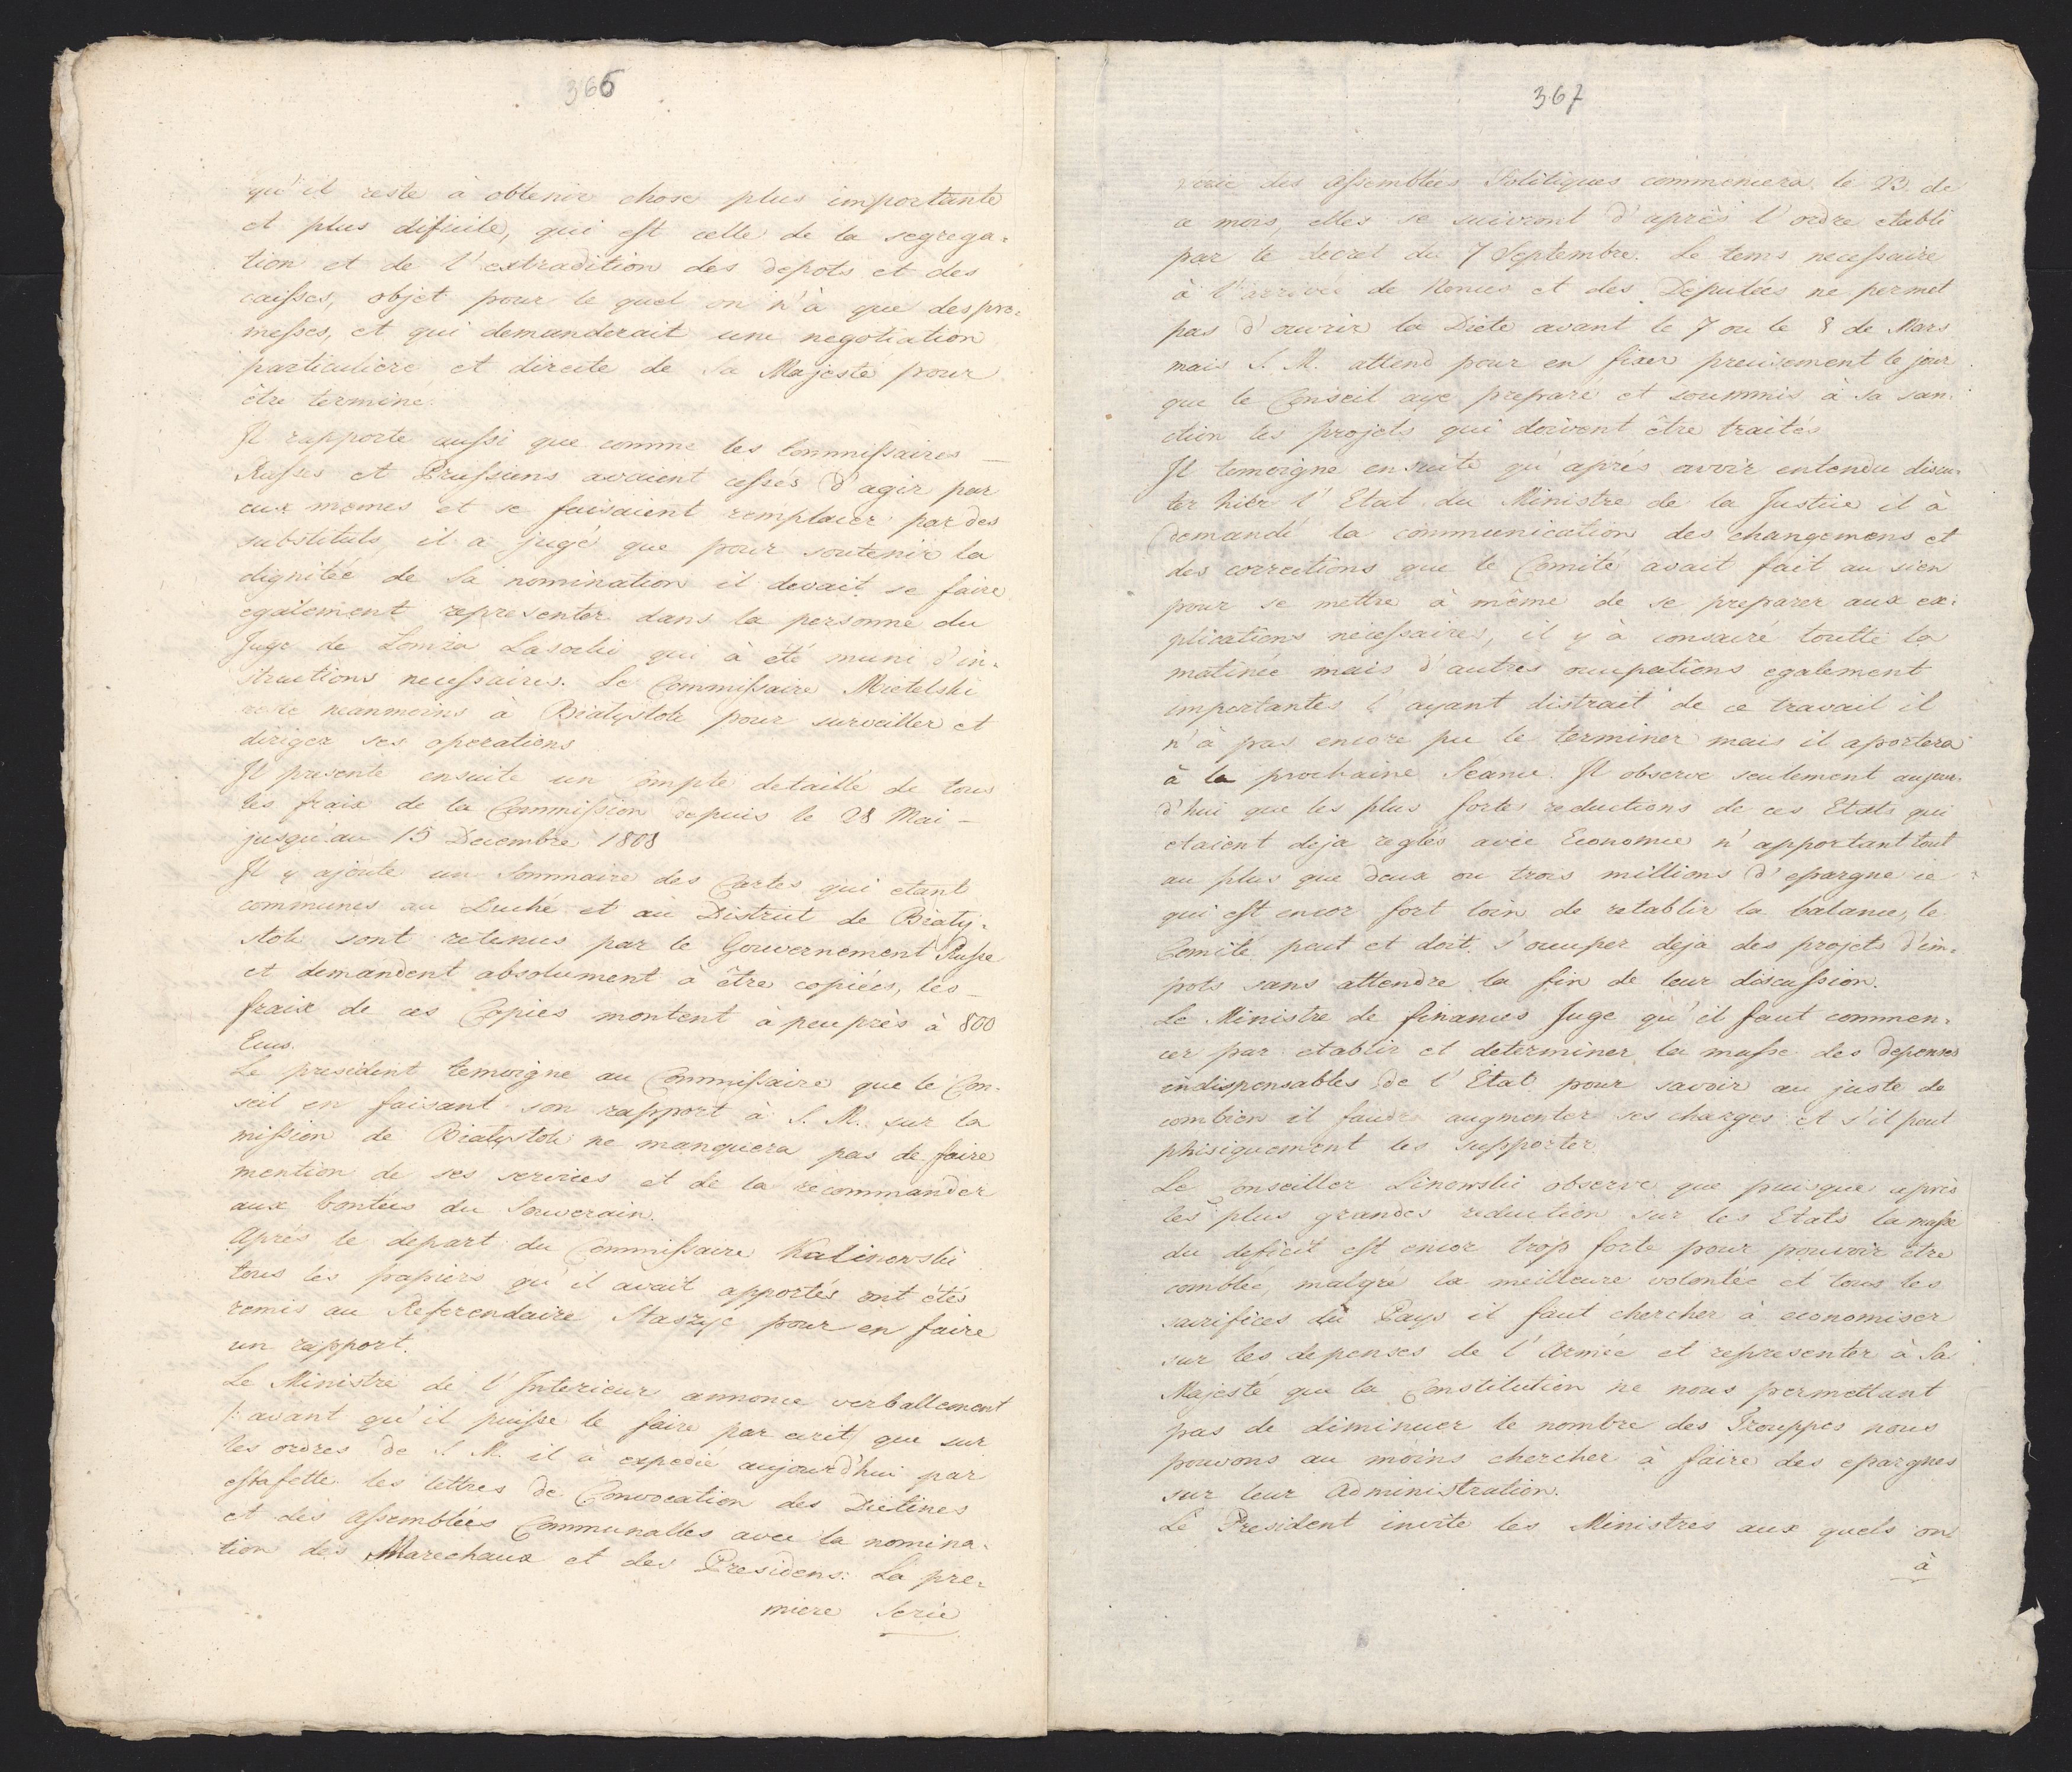 366
qu'il reste à obtenir chose plus importante
et plus dificile, qui est celle de la segrega-
tion et de l'extradition des depots et des
caisses, objet pour le quel on n'à que des pro-
messes, et qui demanderait une negotiation
particuliere et directe de Sa Majesté pour
être terminé.
Il rapporte aussi que comme les Commissaires
Russes et Prussiens avaient cessés d'agir par
eux memes et se faisaient remplacer par des
substituts, il a jugé que pour soutenir la
dignitée de Sa nomination il devait se faire
egalement representer dans la personne du
Juge de Lomza Lasocki qui à été muni d'in-
structions necessaires. Le Commissaire Mietelski
reste neanmoins à Bialystok pour surveiller et
diriger ses operations
Il presente ensuite un compte detaillé de tous
les fraix de la Commission depuis le 28 Mai
jusqu'au 15 Decembre 1808
Il y ajoute un Sommaire des Cartes qui etant
communes au Duché et au District de Bialy-
stok sont retenus par le Gouvernement Russe
et demandent absolument à être copiées, les
fraix de ces Copies montent à peuprès à 800
Ecus.
Le president temoigne au Commissaire que le Con-
seil en faisant son rapport à S. M. sur la
mission de Bialystok ne manquera pas de faire
mention de ses services et de la recommander
aux bontées du Souverain.
Aprés le depart du Commissaire Kalinowski
tous les papiers qu'il avait apportés ont étés
remis au Referendaire Staszyc pour en faire
un rapport.
Le Ministre de l'Interieur annonce verballement
/: avant qu'il puisse le faire par ecrit/ que sur
les ordres de S. M. il à expedié aujourd'hui par
estafette les lettres de Convocation des Dietines
et des assemblées Communalles avec la nomina-
tion des Marechaux et des Presidens: La pre-
miere Serie
367
serie des assemblées Politiques commencera le 23 de
ce mois, elles se suivront d'après l'ordre etabli
par le decret du 7 Septembre. Le tems necessaire
à l'arrivée de Nonces et des Députées ne permet
pas d'ouvrir la Diete avant le 7 ou le 8 de Mars
mais S. M. attend pour en fixer precisement le jour
que le Conseil aye preparé et soummis à sa san-
ction les projets qui doivent être traités
Il temoigne ensuite qu'aprés avoir entendu discu-
ter hier l'Etat du Ministre de la Justice il à
demandé la communication des changemens et
des corrections que le Comité avait fait au sien
pour se mettre à même de se preparer aux ex-
plications nécessaires, il y à consacré toutte la
matinée mais d'autres occupations egalement
importantes l'ayant distrait de ce travail il
n'à pas encore pu le terminer mais il aportera
à la prochaine Seance. Il observe seulement aujour-
d'hui que les plus fortes reductions de ces Etats qui
etaient deja reglés avec Economie n'apportant tout
au plus que deux ou trois millions d'epargne ce
qui est encor fort loin de retablir la balance, le
Comité peut et doit s'occuper deja des projets d'im-
pots sans attendre la fin de leur discussion.
Le Ministre de finances Juge qu'il faut commen-
cer par etablir et determiner la masse des depenses
indispensables de l'Etat pour savoir au juste de
combien il faudra augmenter ses charges et s'il peut
phisiquement les supporter
Le Conseiller Linowski observe que puisque après
les plus grandes reduction sur les Etats la masse
du deficit est encor trop forte pour pouvoir être
comblée, malgré la meilleure volontée et tous les
sacrifices du Pays il faut chercher à economiser
sur les depenses de l'Armée et representer à Sa
Majesté que la Constitution ne nous permettant
pas de diminuer le nombre des Trouppes nous
pouvons au moins chercher à faire des epargnes
sur leur administration.
Le President invite les Ministres aux quels on
à